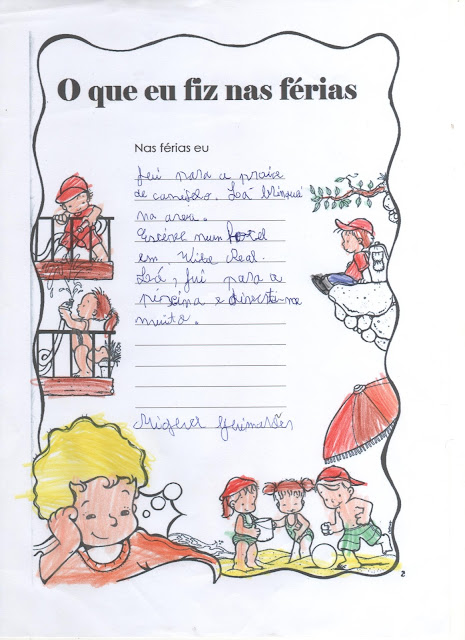 O que eu fiz nas férias
Nas férias eu
fui para a praia
de camifdo. Lá brinquei
na area.
Estéve num hotel
em Vila Real.
Lá, fui para a
piscina e diverti-me
muito.
Miguel Guimarães
2